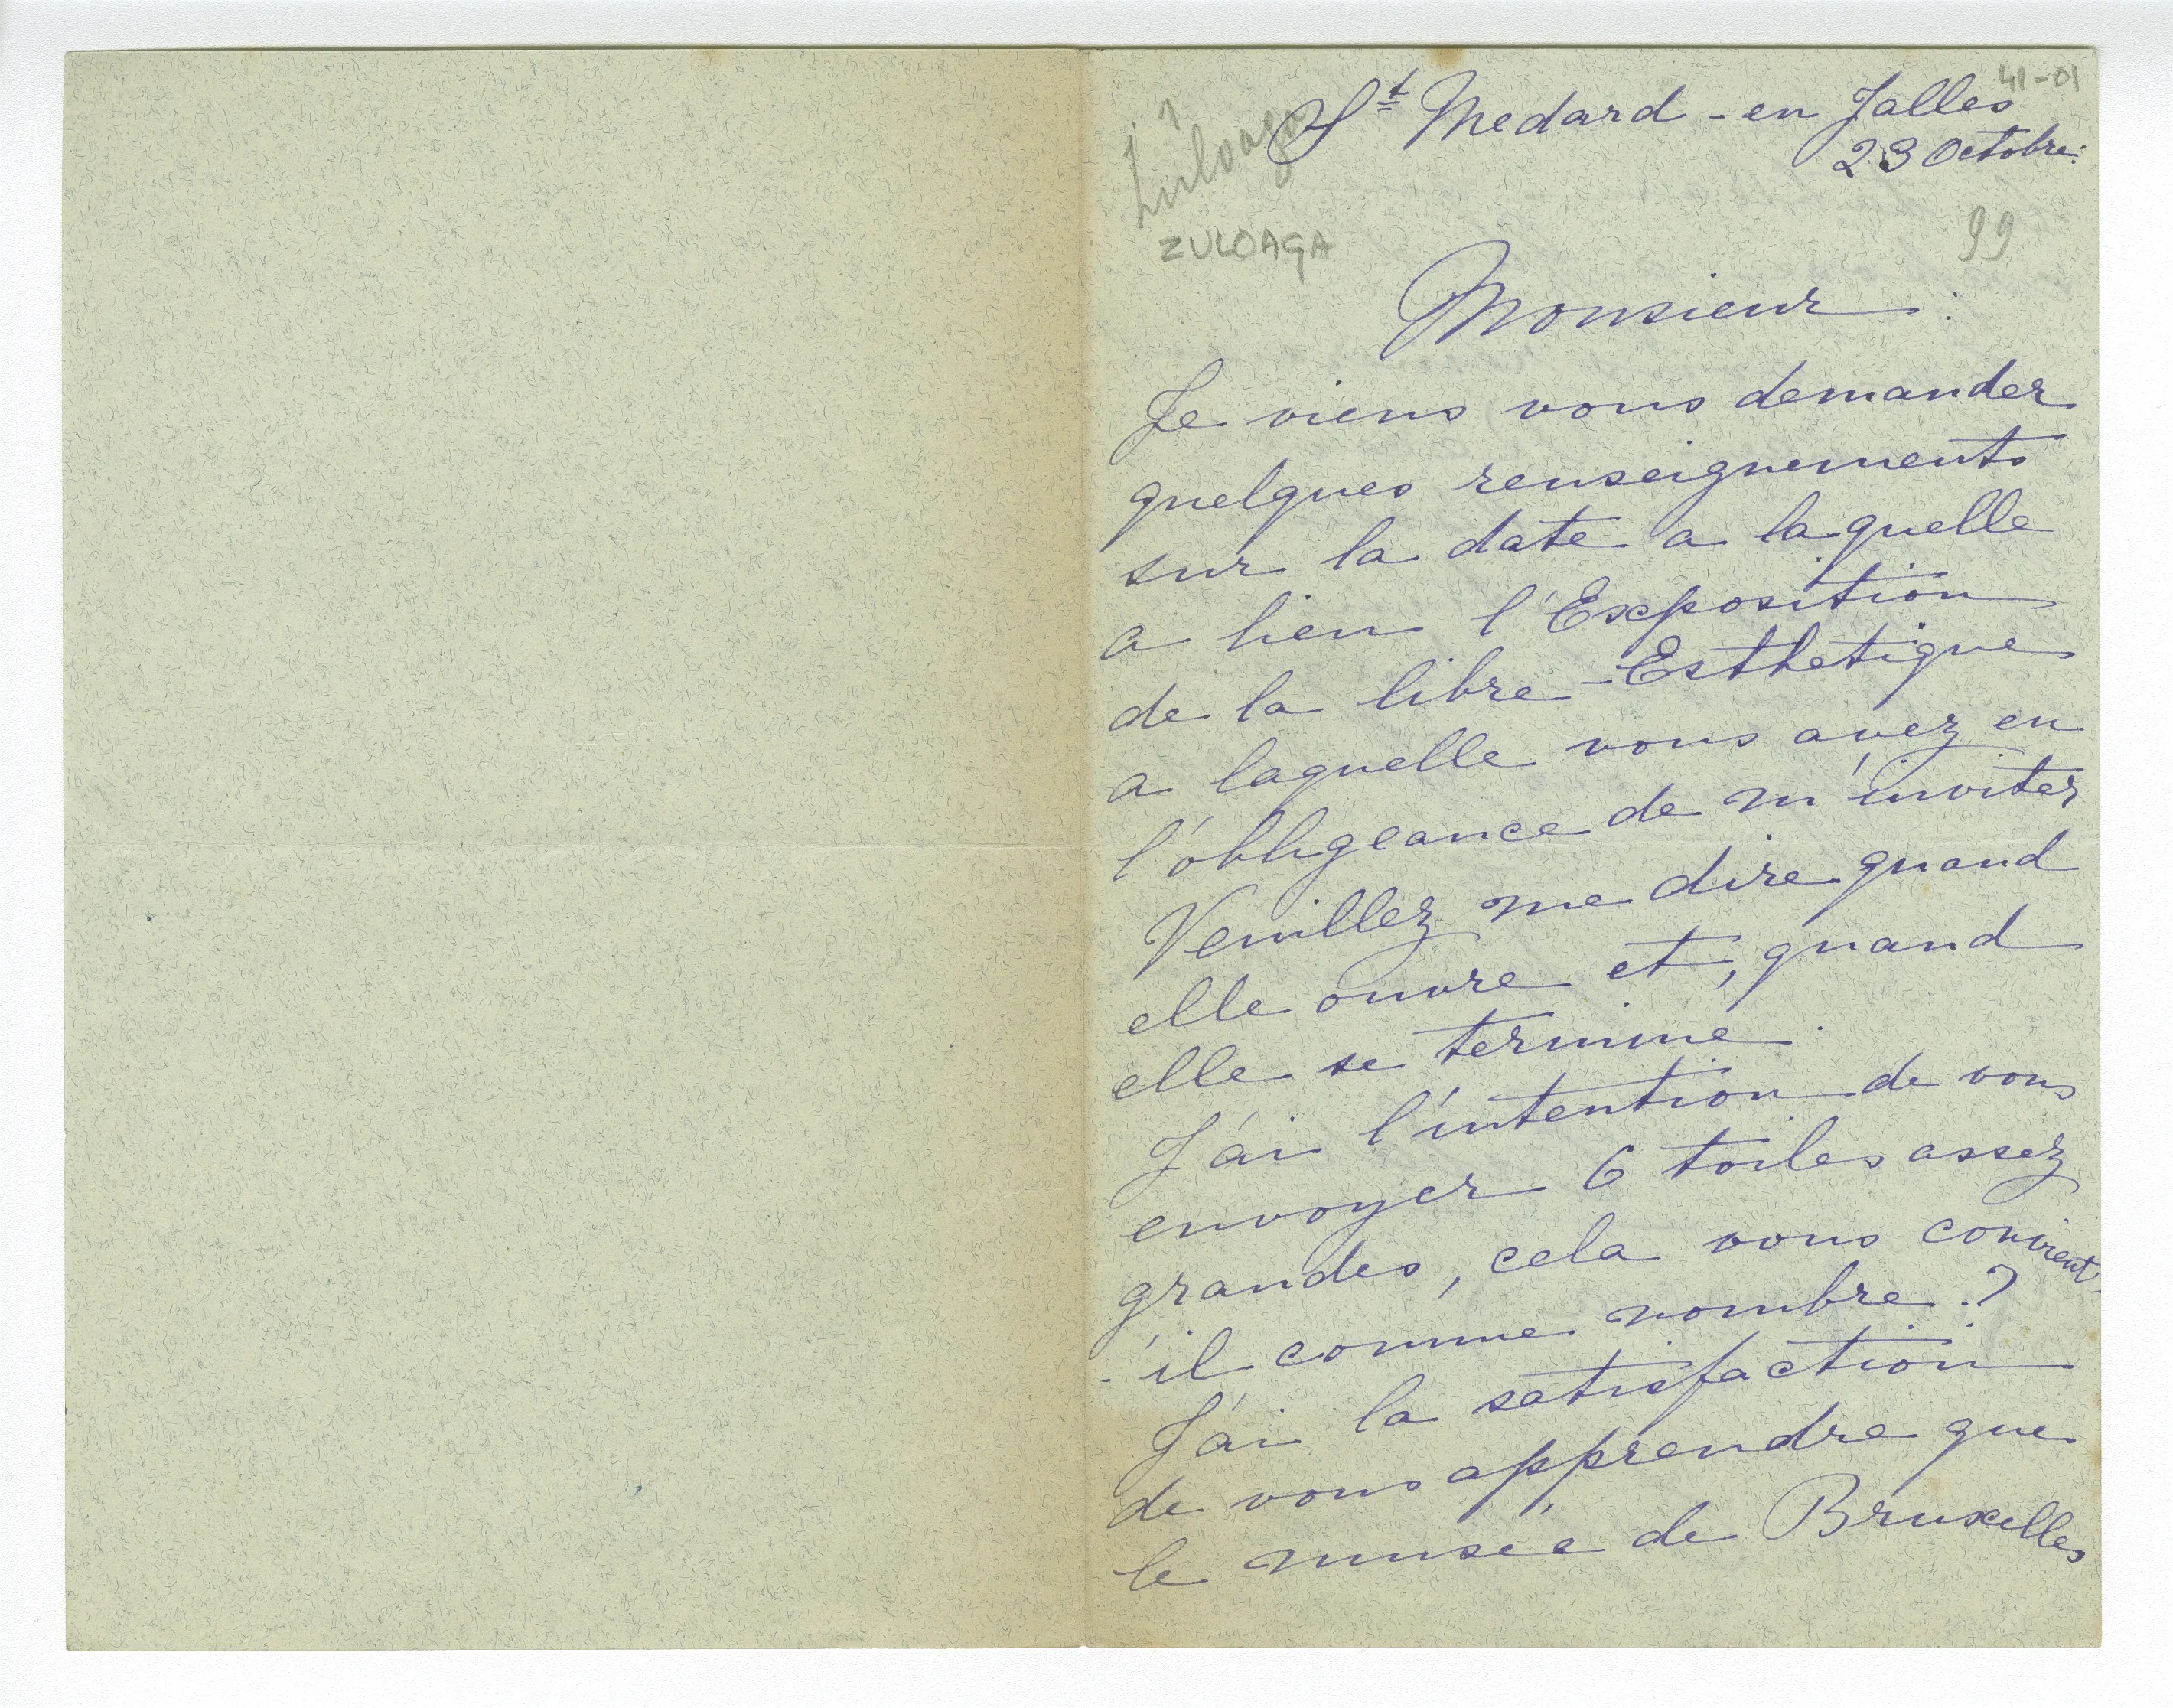 41-01
St Medard - en Jalles
23 Octobre.
Zuloaga
ZULOAGA
99
Monsieur :
Je viens vous demander
quelques renseignements
sur la date a laquelle
a lieu l'Exposition
de la libre-Esthetique
a laquelle vous avez eu
l'obligeance de m'inviter
Veuillez me dire quand
elle ouvre et, quand
elle se termine.
J'ai l'intention de vous
envoyer 6 toiles assez
grandes, cela vous convient-
-il comme nombre ?
J'ai la satisfaction
de vous apprendre que
le musée de Bruxelles